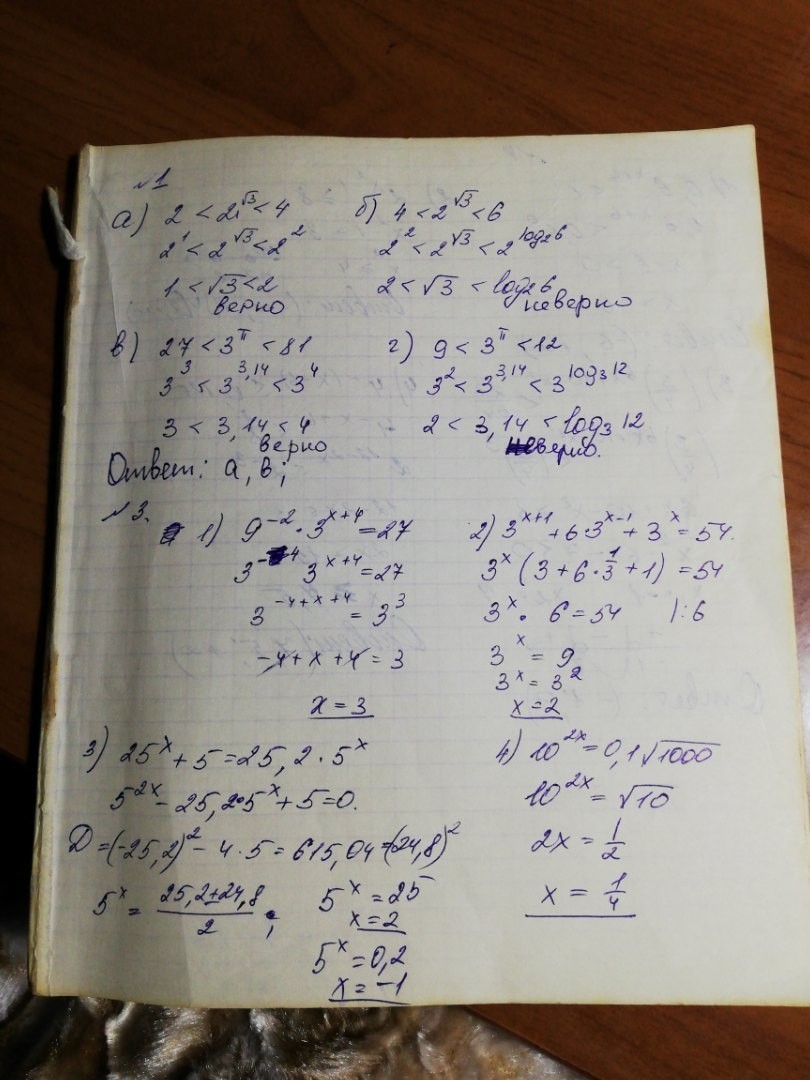 №1
а) 2 < 2^√3 < 4
2^1 < 2^√3 < 2^2
1 < √3 < 2
верно
б) 4 < 2^√3 < 6
2^2 < 2^√3 < 2^log₂6
2 < √3 < log₂6
неверно
в) 27 < 3^π < 81
3^3 < 3^3,14 < 3^4
3 < 3,14 < 4
верно
г) 9 < 3^π < 12
3^2 < 3^3,14 < 3^log₃12
2 < 3,14 < log₃12
неверно.
Ответ: а, в;
№3.
1) 9^-2 · 3^x+4 = 27
3^-4 3^x+4 = 27
3^-4+x+4 = 3^3
-4+x+4 = 3
x = 3
2) 3^x+1 + 6·3^x-1 + 3^x = 54.
3^x (3 + 6·1/3 + 1) = 54
3^x · 6 = 54 |:6
3^x = 9
3^x = 3^2
x = 2
3) 25^x + 5 = 25,2 · 5^x
5^2x - 25,2·5^x + 5 = 0.
D = (-25,2)^2 - 4·5 = 615,04 = (24,8)^2
5^x = (25,2±24,8)/2 ;
5^x = 25
x = 2
5^x = 0,2
x = -1
4) 10^2x = 0,1√1000
10^2x = √10
2x = 1/2
x = 1/4